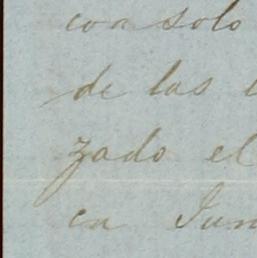 con solo
de las
zado el
en Jun